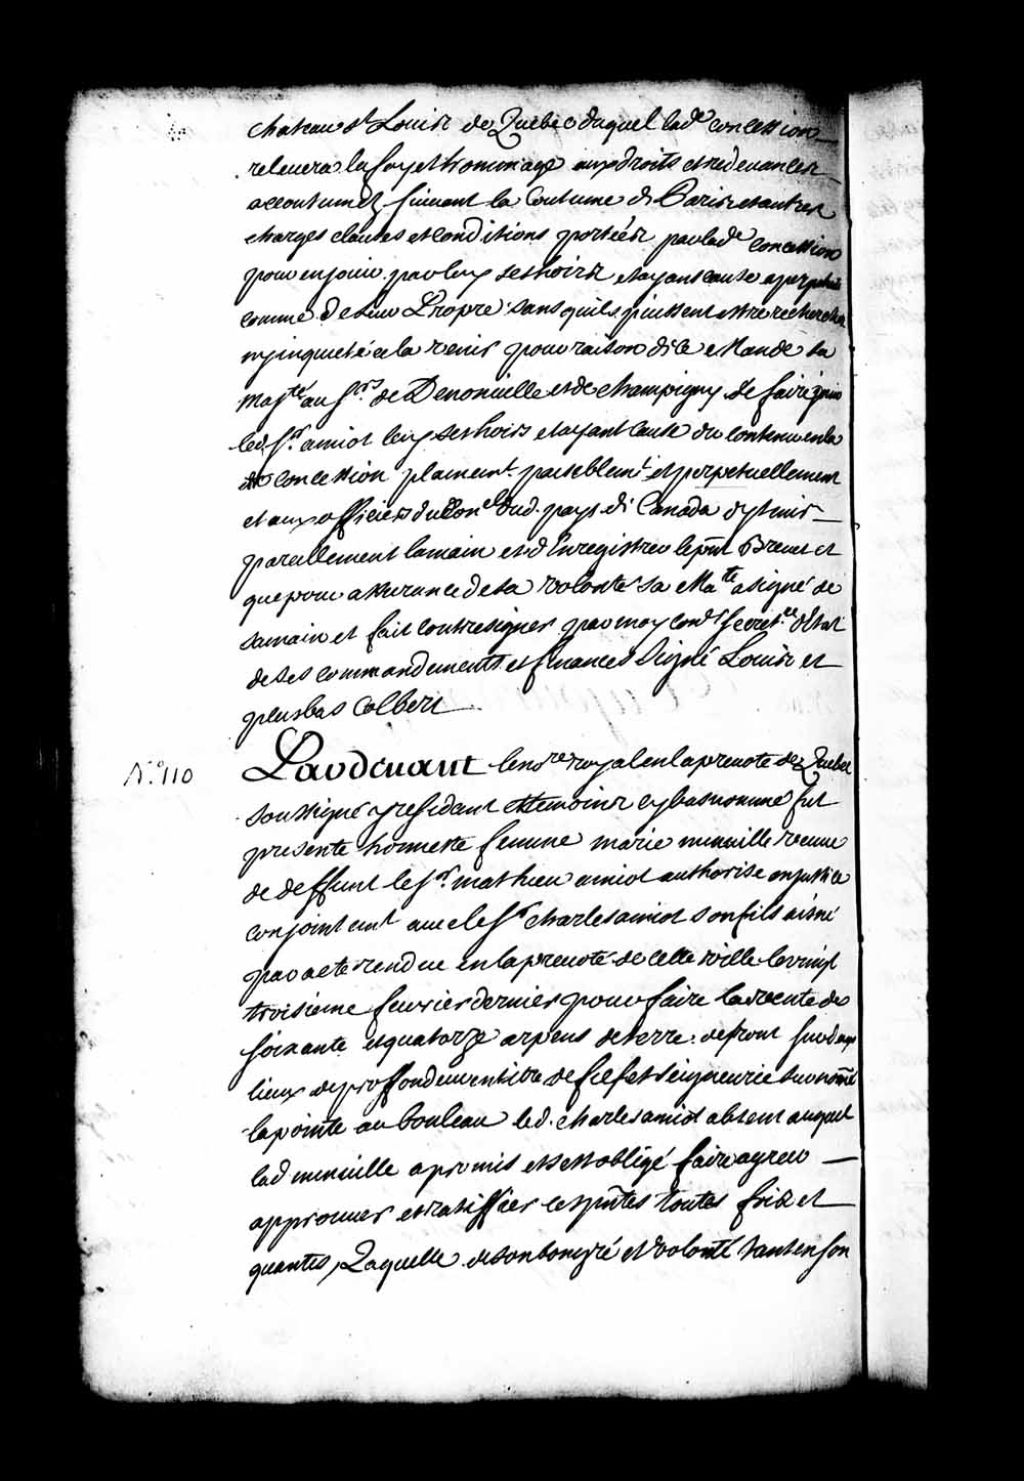 chateau St Louis de Quebec duquel lade concession
relevera la foy et hommage aux droits et redevances
accoutumez suivant la Coutume de Paris et autres
charges clauses et conditions portées par lade concession
pour en jouir par luy ses hoirs et ayans cause a perpetuité
comme de leur Propre sans quils puissent estre recherchez
ny inquietés a lavenir pour raison de ce Mande sa
Majté au Srs de Denonville et de champigny de faire jouir
led. Sr. amiot luy ses hoirs et ayant cause du contenu en la
concession plainemt. paisiblemt et perpetuellement
et aux officiers du Conel dud. pays de Canada dy tenir
pareillement la main et d Enregistrer le pnt Brevet et
que pour assurance de sa volonté sa Mate a signé de
sa main et fait contresigner par moy conser secretre d'Estat
de ses commandements et finances Signé Louis et
plus bas Colbert
N.o 110
Pardevant le nore royal en la prevote de Quebec
soussigné y residant et temoins cy bas nommé fut
presente honneste femme marie miville veuve
de deffunt le Sr. mathieu amiot authorise en justice
conjointemt avec le Sr charles amiot son fils aisné
par acte rendue en la prevoté de cette ville le vingt
troisieme fevrier dernier pour faire la vente de
soixante et quatorze arpens de terre de front sur deux
lieux de proffondeur en titre de fief et seigneurie surnommé
la pointe au bouleau led. charles amiot absent auquel
lad miville a promis et s'est obligé faire agreer
approuver et ratiffier ces pntes toutes fois et
quantes, Laquelle de son bon gré et volonté tant en son